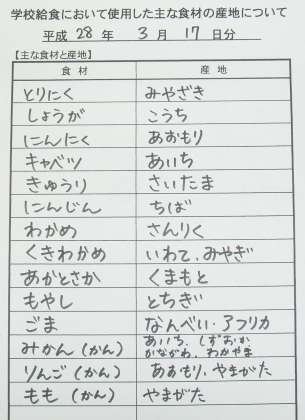 学校給食において使用した主な食材の産地について
平成 28 年 3 月 17 日分
【主な食材と産地】
食材 産地
とりにく みやざき
しょうが こうち
にんにく あおもり
キャベツ あいち
きゅうり さいたま
にんじん ちば
わかめ さんりく
くきわかめ いわて、みやぎ
あかとさか くまもと
もやし とちぎ
ごま なんべい・アフリカ
みかん(かん) あいち、しずおか
かながわ、わかやま
りんご(かん) あおもり、やまがた
もも(かん) やまがた